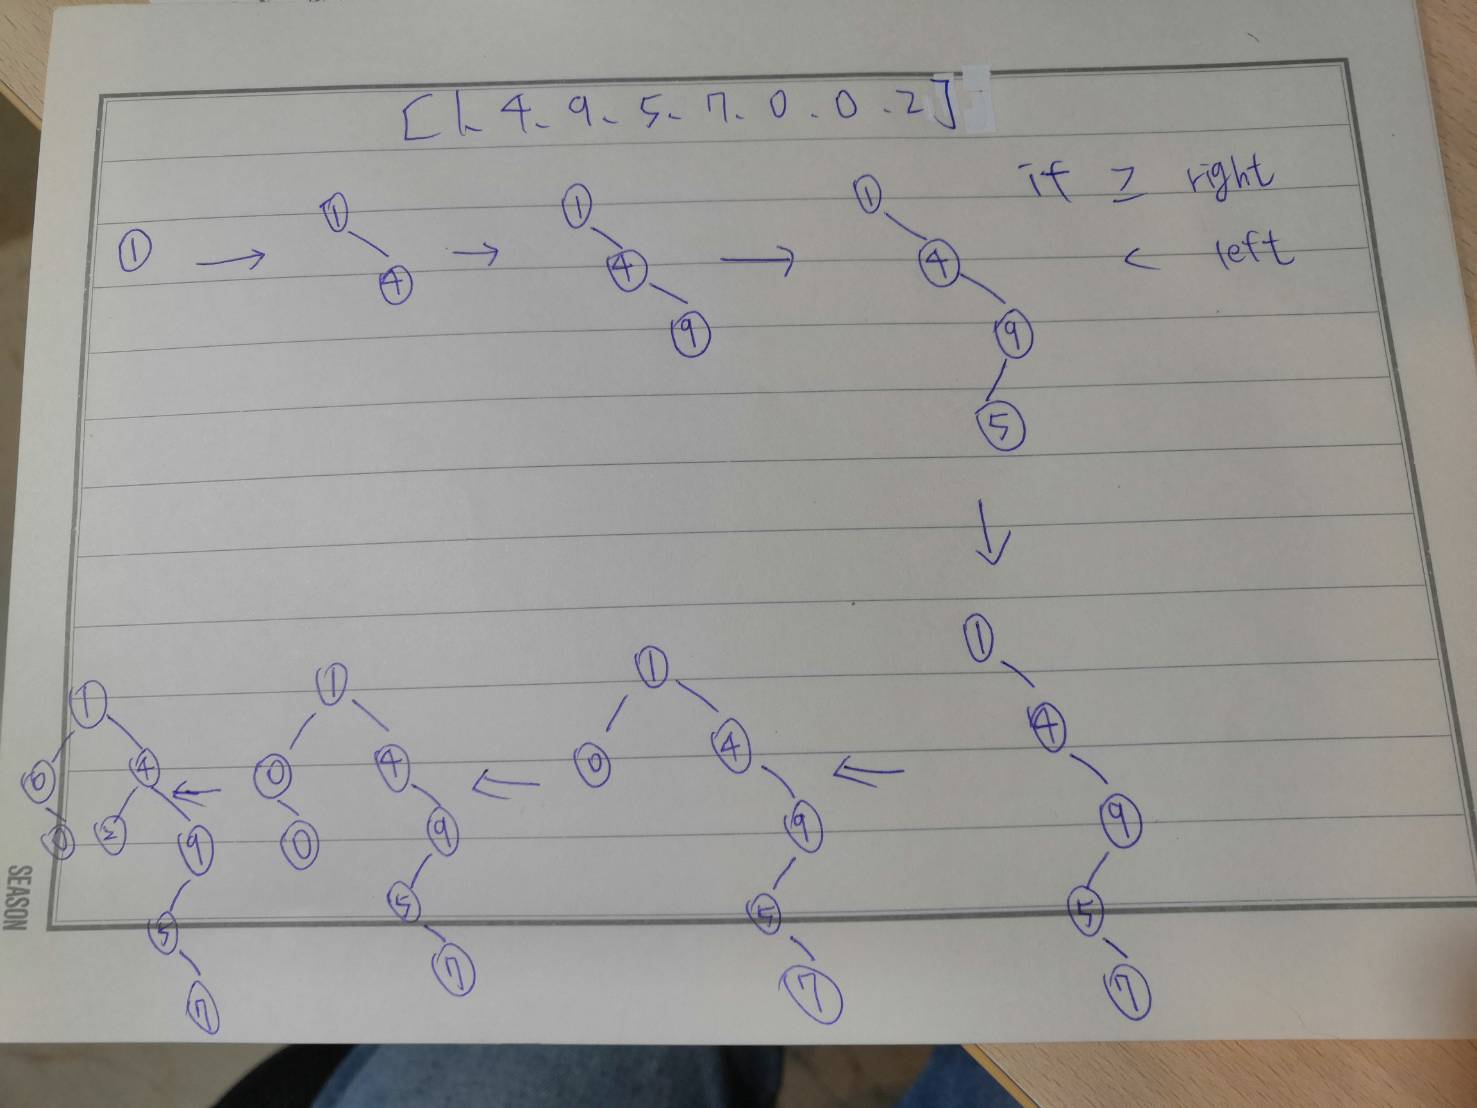 [1. 4. 9. 5. 7. 0. 0. 2]
if ≥ right
< left
1 → 1 4 → 1 4 9 → 1 4 9 5
↓
1 4 9 5 7
←
1 0 4 9 5 7
←
1 0 4 0 9 5 7
←
1 0 4 0 2 9 5 7
SEASON